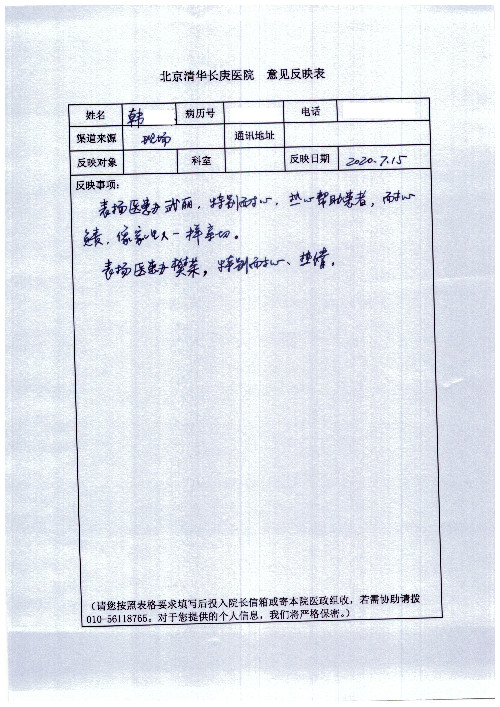 北京清华长庚医院 意见反映表
姓名 韩 病历号 电话
渠道来源 现场 通讯地址
反映对象 科室 反映日期 2020.7.15
反映事项：
表扬医患办武丽，特别耐心，热心帮助患者，耐心
负责，像家里人一样亲切。
表扬医患办樊荣，特别耐心、热情。
（请您按照表格要求填写后投入院长信箱或寄本院医政组收，若需协助请拨
010-56118765；对于您提供的个人信息，我们将严格保密。）